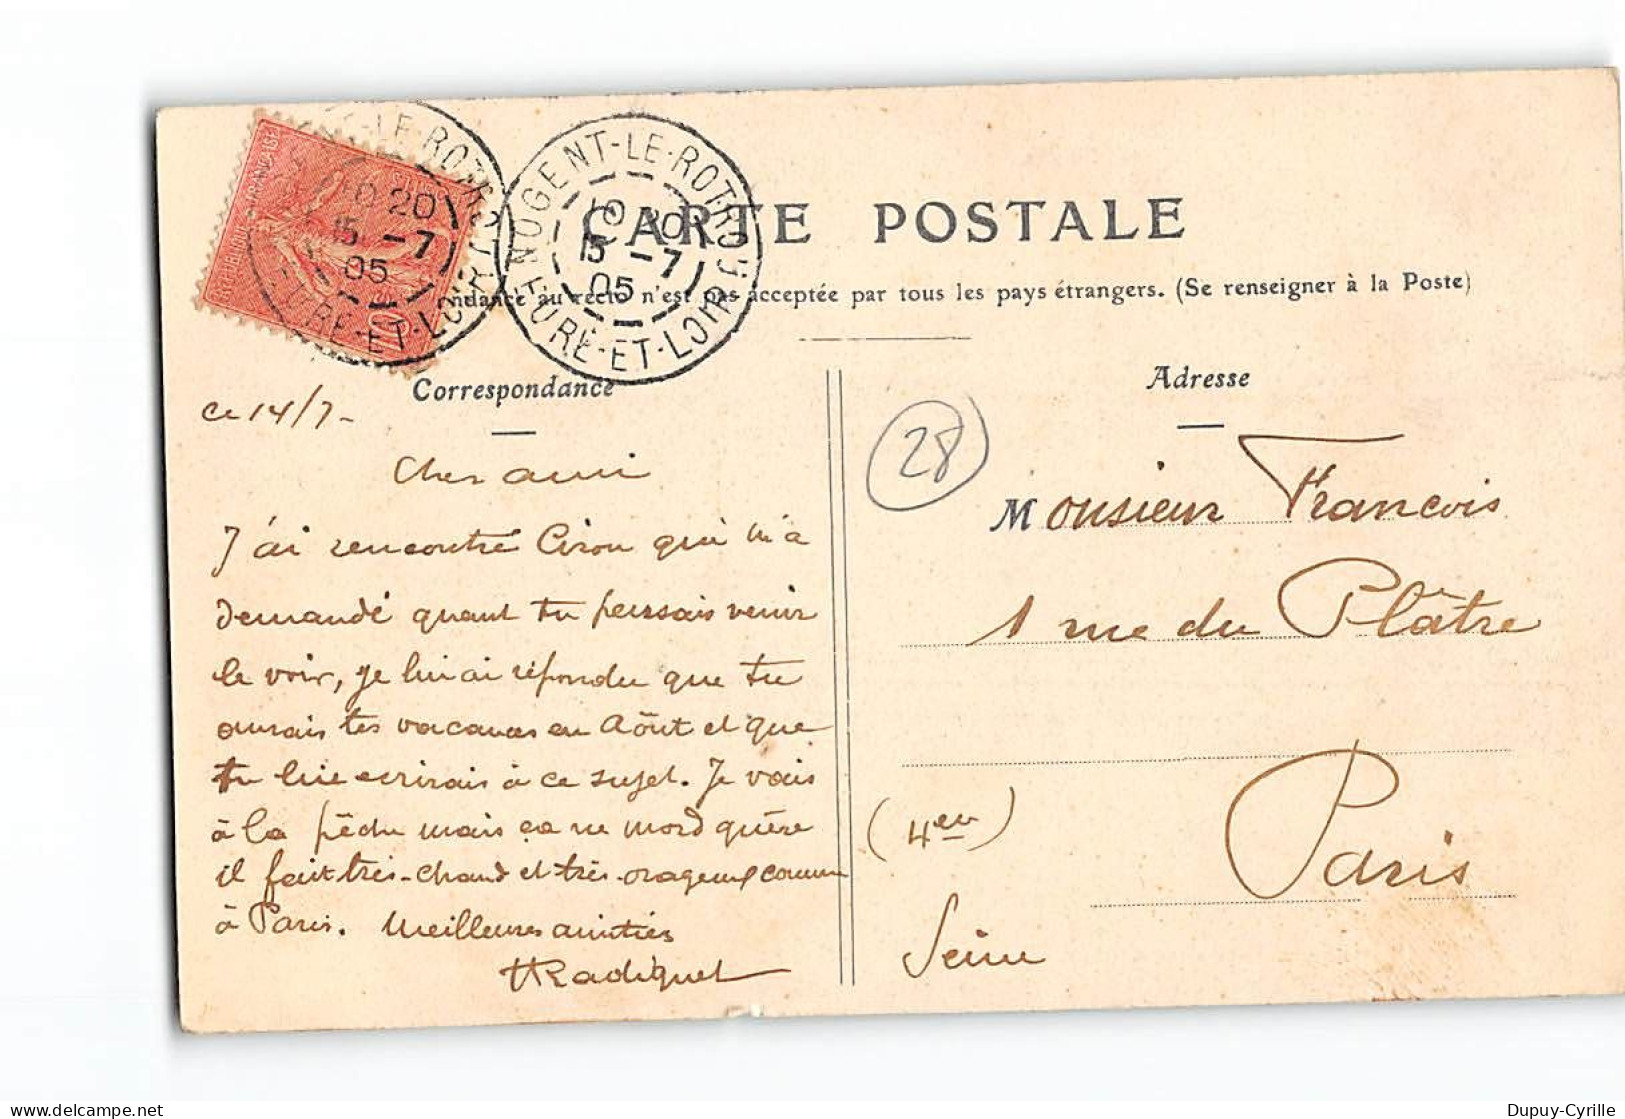 CARTE POSTALE
ndance au recto n'est pas acceptée par tous les pays étrangers. (Se renseigner à la Poste)
NOGENT-LE-ROTROU
15 -7
05
EURE-ET-LOIR
LE-ROTROU
20
15 -7
05
EURE-ET-LOIR
RÉPUBLIQUE FRANÇAISE
POSTES
10
Correspondance
Ce 14/7-
Cher ami
J'ai rencontré Ciron qui m'a
demandé quant tu penssais venir
le voir, je lui ai répondu que tu
aurais tes vacances en Aôut et que
tu lui ecrirais à ce sujet. Je vais
à la pêche mais ça ne mord guère
il fait très-chaud et très-orageux comme
à Paris. Meilleures amitiés
HRadiguet
Adresse
28
Monsieur Francois
1 rue du Plâtre
Paris
(4em)
Seine
Dupuy-Cyrille